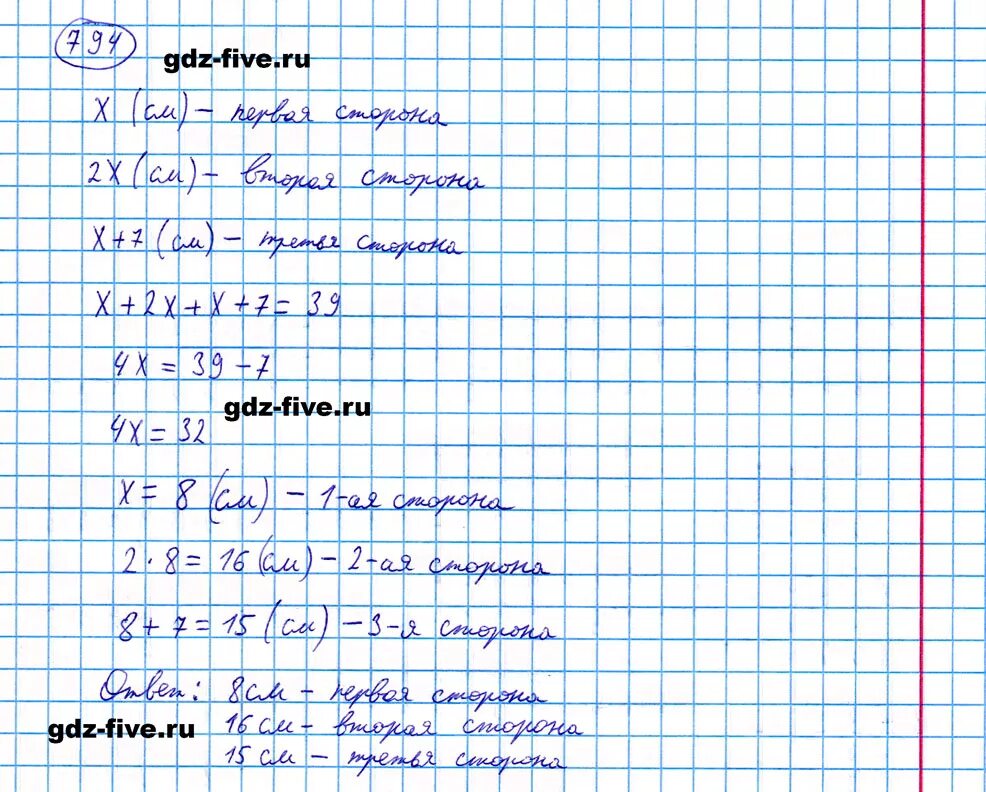 794
gdz-five.ru
x (см) – первая сторона
2x (см) – вторая сторона
x+7 (см) – третья сторона
x+2x+x+7=39
4x=39-7
gdz-five.ru
4x=32
x=8 (см) – 1-ая сторона
2·8=16 (см) – 2-ая сторона
8+7=15 (см) – 3-я сторона
Ответ: 8см – первая сторона
gdz-five.ru 16 см – вторая сторона
15 см – третья сторона